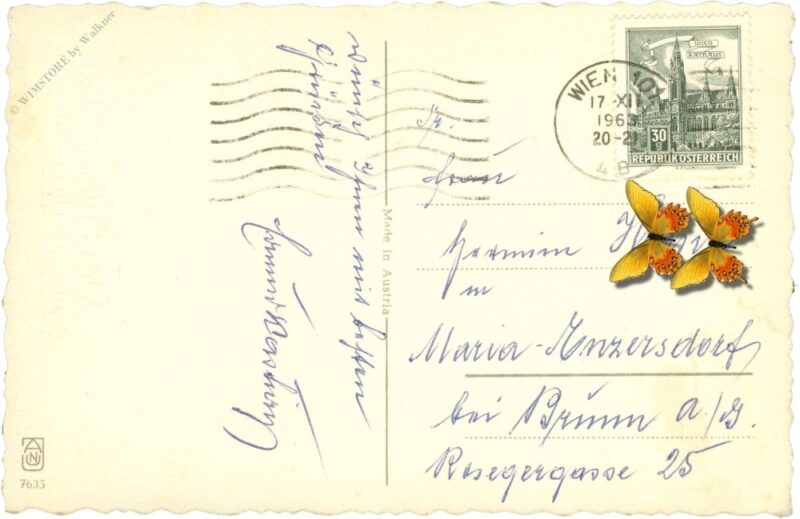 © WIMSTORE by Walkner
wünscht Ihnen mit besten
Grüßen
Made in Austria
WIEN
RATHAUS
30 g
REPUBLIK ÖSTERREICH
WIEN 101
17.-XII
1963
20-21
4 B
An
Frau
Hermine
in
Maria-Enzersdorf
bei Brunn a/G.
Rosegergasse 25
AUN
7635